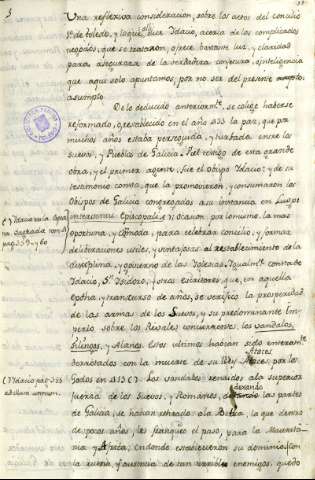 Una reflexiva consideracion, sobre los actos del concilio
1º de Toledo, y lo que dice Idacio, acerca de los complicados
negocios, que se trataron, ofrece bastante luz, y claridad
para asegurarse de la verdadera conjetura, e inteligencia
que aqui solo apuntamos, por no ser del presente
asumpto.
De lo deducido anteriormte, se colige haberse
reformado, o restablecido en el año 433 la paz, que por
muchos años estaba perseguida, y turbada entre los
Suevos, y Pueblos de Galicia. Fiel testigo de esta grande
obra, y el primer agente, fue el obispo Idacio: y de su
testimonio consta, que la promovieron, y consumaron los
Obispos de Galicia congregados a su instancia en Lugo
interventu Episcopali: ocasion por lo mismo, la mas
oportuna, y comoda, para celebrar concilio, y formar
deliberaciones utiles, y ventajosas al restablecimiento de la
disciplina, y govierno de las Yglesias. Igualmte consta de
Idacio, Sn Isidoro, y otros escritores, que, en aquella
epoca, y transcurso de años, se verifico la prosperidad
de las armas de los Suevos, y su predominante Im
perio sobre los Reales los Vandalos,
Silingos, y Alanos. Estos ultimos habian sido enteramte
derrotados con la muerte de su Rey por los
Godos en Los Vandalos venidos a la superior
fuerza de los Suevos, y Romanos, las partes
de Galicia, se habian retirado a la Betica, la que dentro
de pocos años, les franqueo el paso, para la Maurita
nia, y Africa, en donde establecieron su dominacion
con la ruina, y ausencia de tan terribles enemigos, quedo
(*) Idacio en la Espa
ña Sagrada tom. 4
pag. 359. y 60
(*) Idacio pag 355